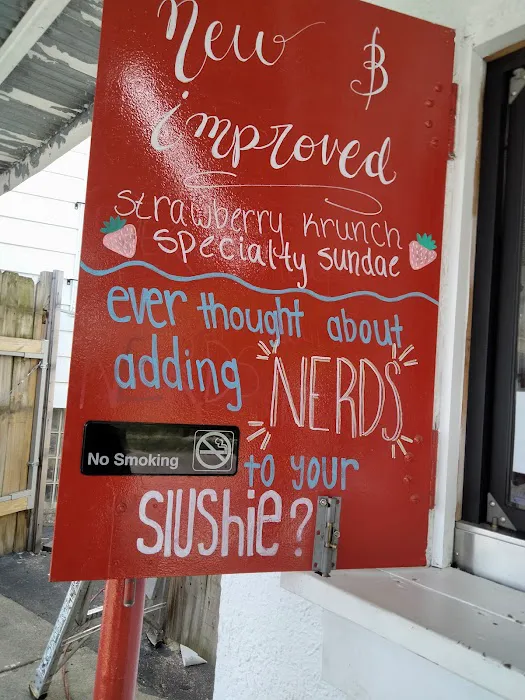 New &
improved
strawberry krunch
specialty sundae
ever thought about
adding NERDS
No Smoking
to your
slushie?